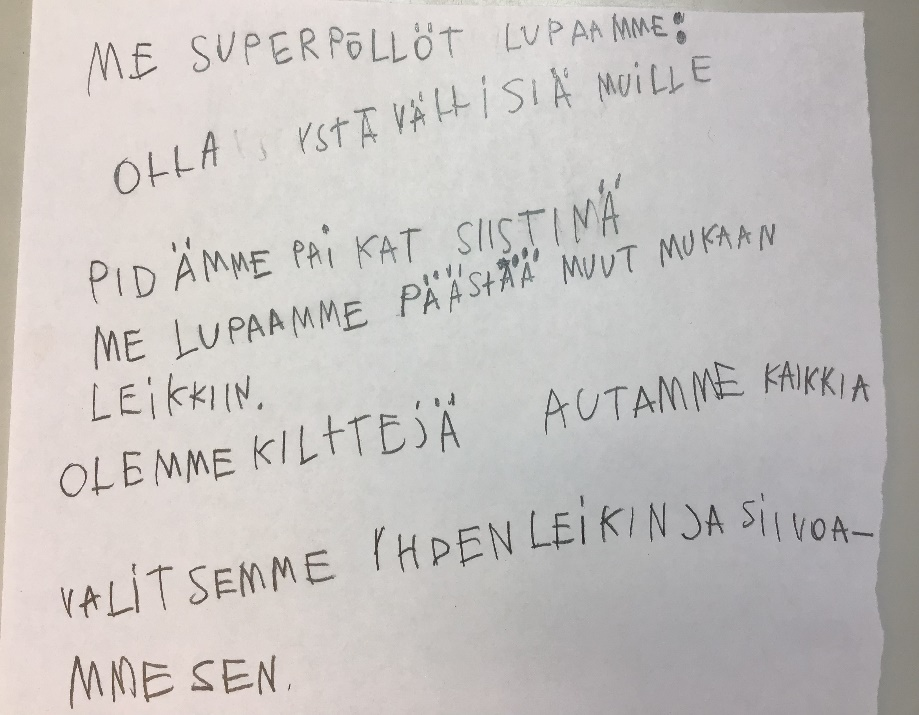 ME SUPERPÖLLÖT LUPAAMME:
OLLA YSTÄVÄLLISIÄ MUILLE
PIDÄMME PAIKAT SIISTINÄ
ME LUPAAMME PÄÄSTÄÄ MUUT MUKAAN
LEIKKIIN.
OLEMME KILTTEJÄ AUTAMME KAIKKIA
VALITSEMME YHDEN LEIKIN JA SIIVOA-
MME SEN.